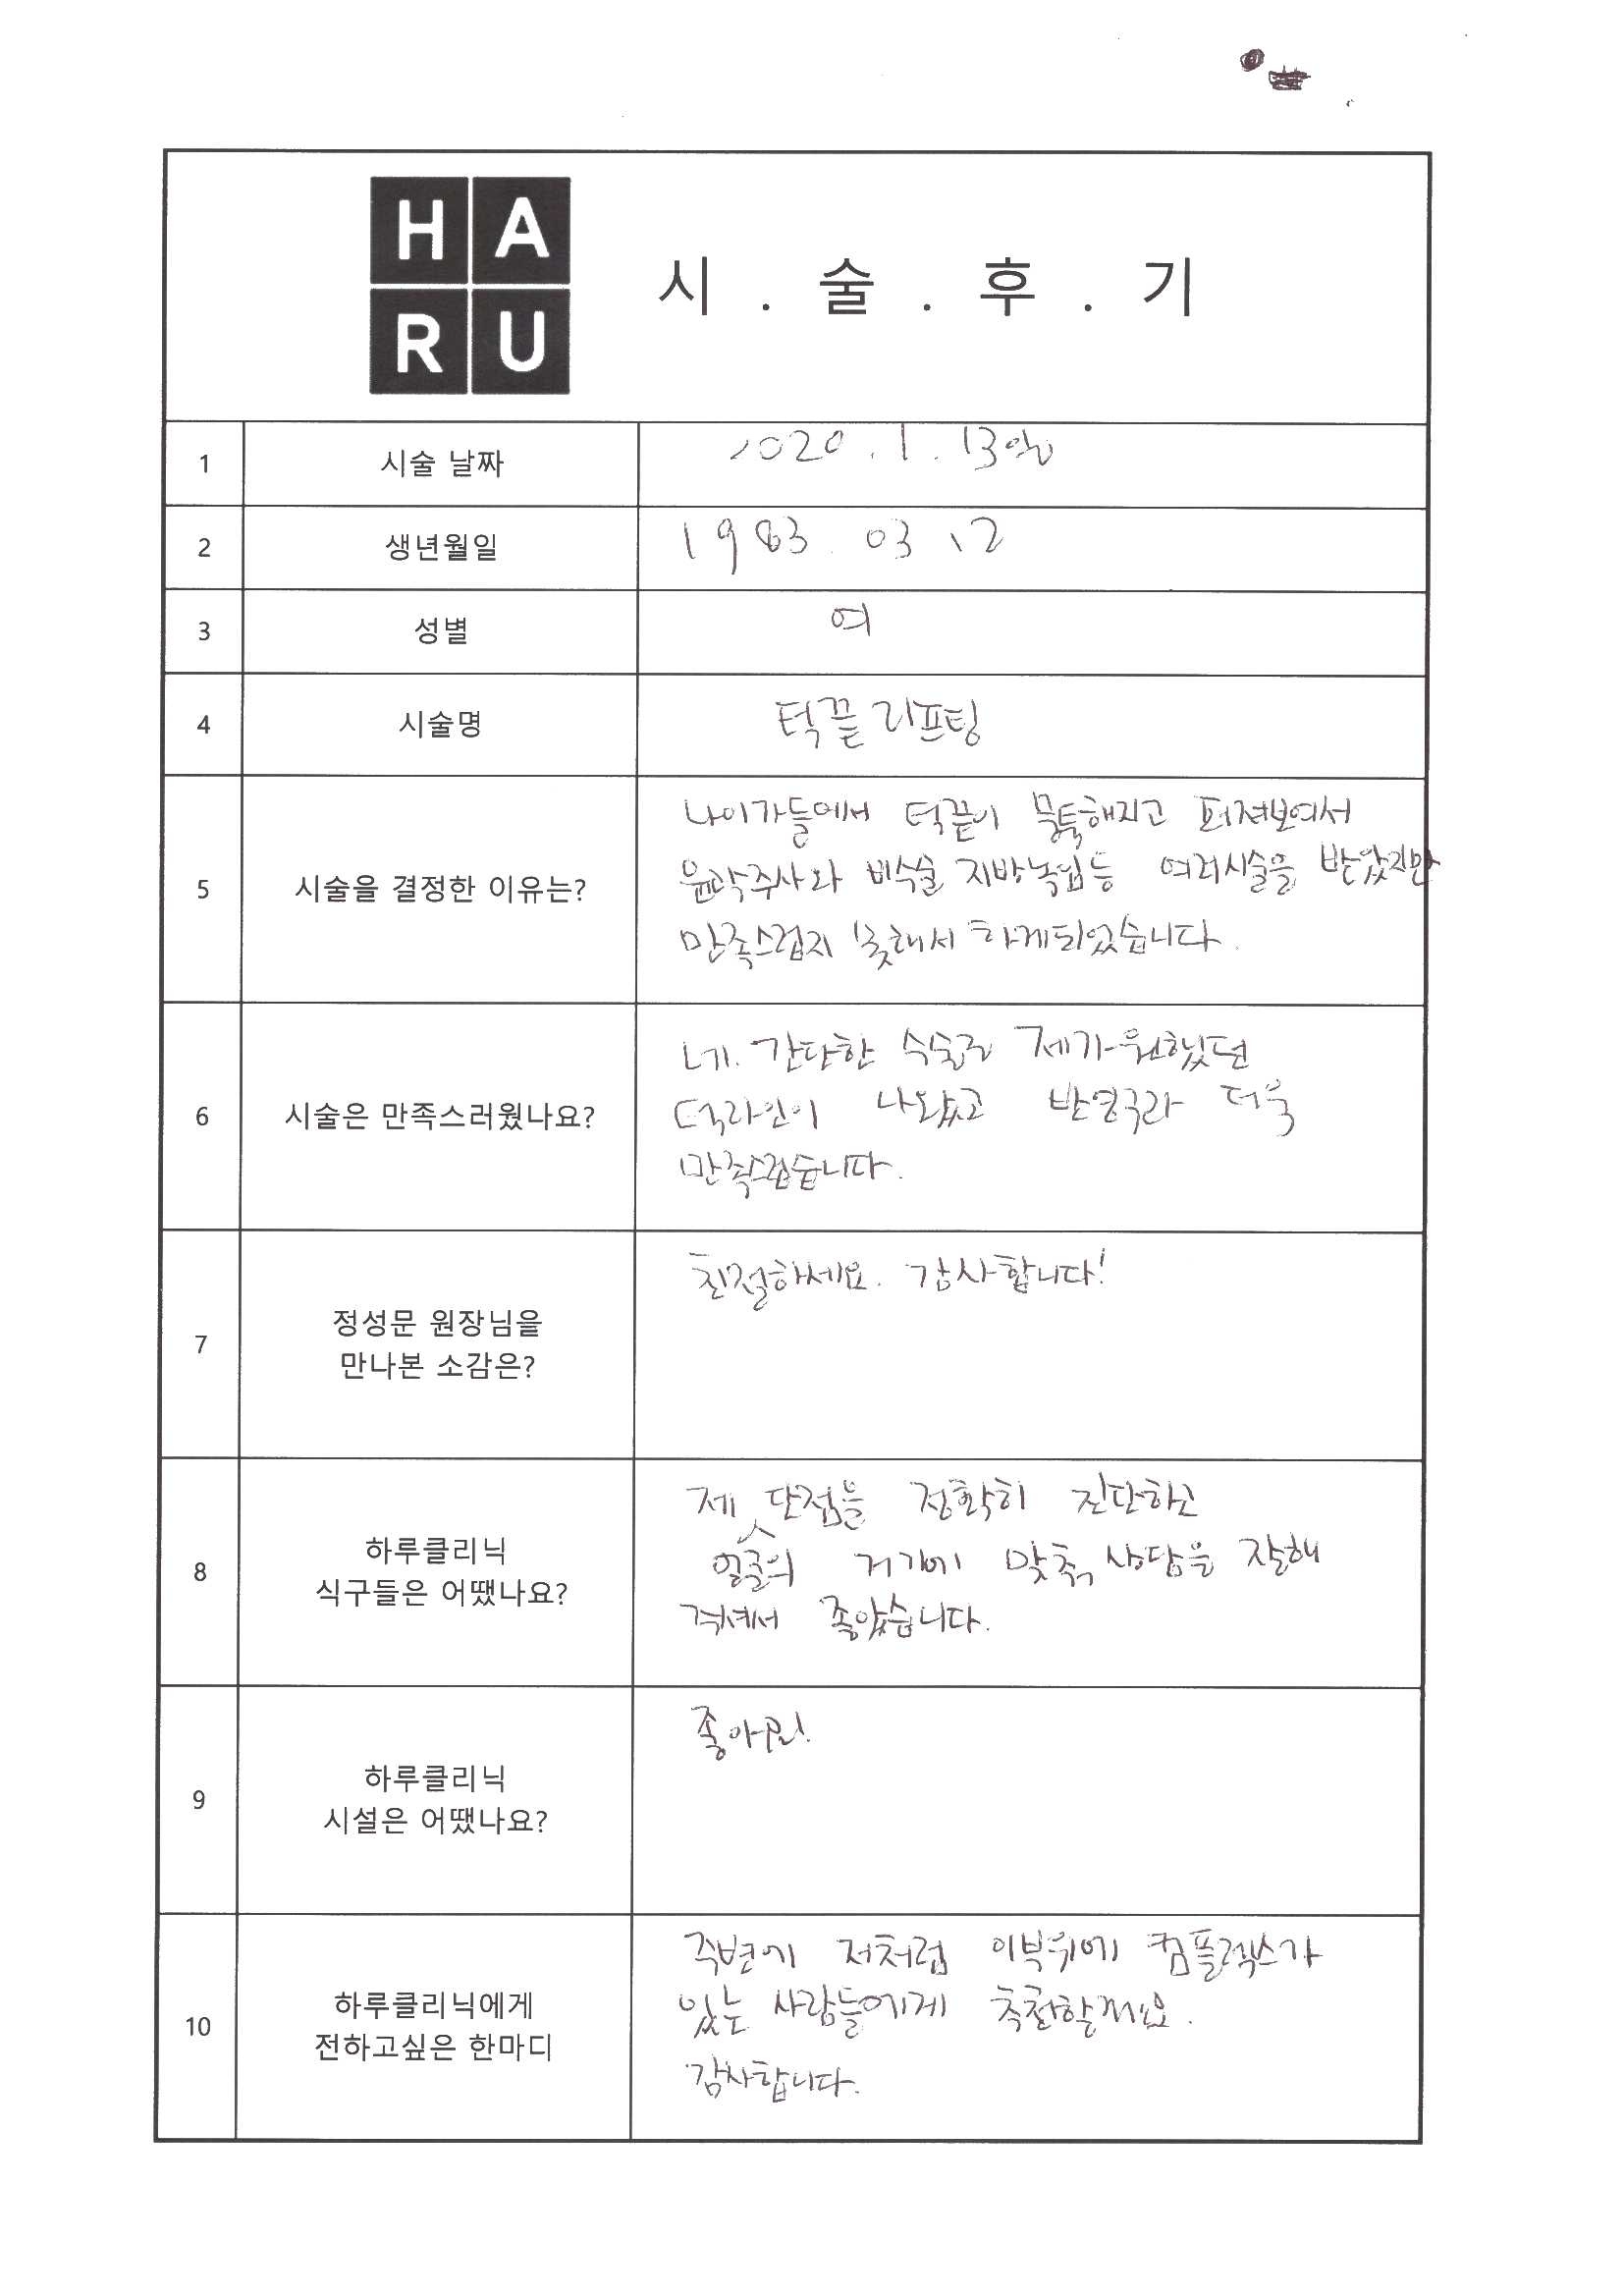 HA
RU
시 . 술 . 후 . 기
1 시술 날짜 2020. 1. 13일
2 생년월일 1983. 03 12
3 성별 여
4 시술명 턱끝 리프팅
5 시술을 결정한 이유는?
나이가들에서 턱끝이 뭉툭해지고 퍼져보여서
윤곽주사와 비수술 지방녹임등 여러시술을 받았지만
만족스럽지 못해서 하게되었습니다.
6 시술은 만족스러웠나요?
네. 간단한 수술로 제가 원했던
턱라인이 나왔고 반영구라 더욱
만족스럽습니다.
7 정성문 원장님을
만나본 소감은?
친절하세요. 감사합니다!
8 하루클리닉
식구들은 어땠나요?
제 얼굴의 단점을 정확히 진단하고
거기에 맞춰 상담을 잘해
주셔서 좋았습니다.
9 하루클리닉
시설은 어땠나요?
좋아요!
10 하루클리닉에게
전하고싶은 한마디
주변에 저처럼 이부위에 컴플렉스가
있는 사람들에게 추천할께요.
감사합니다.